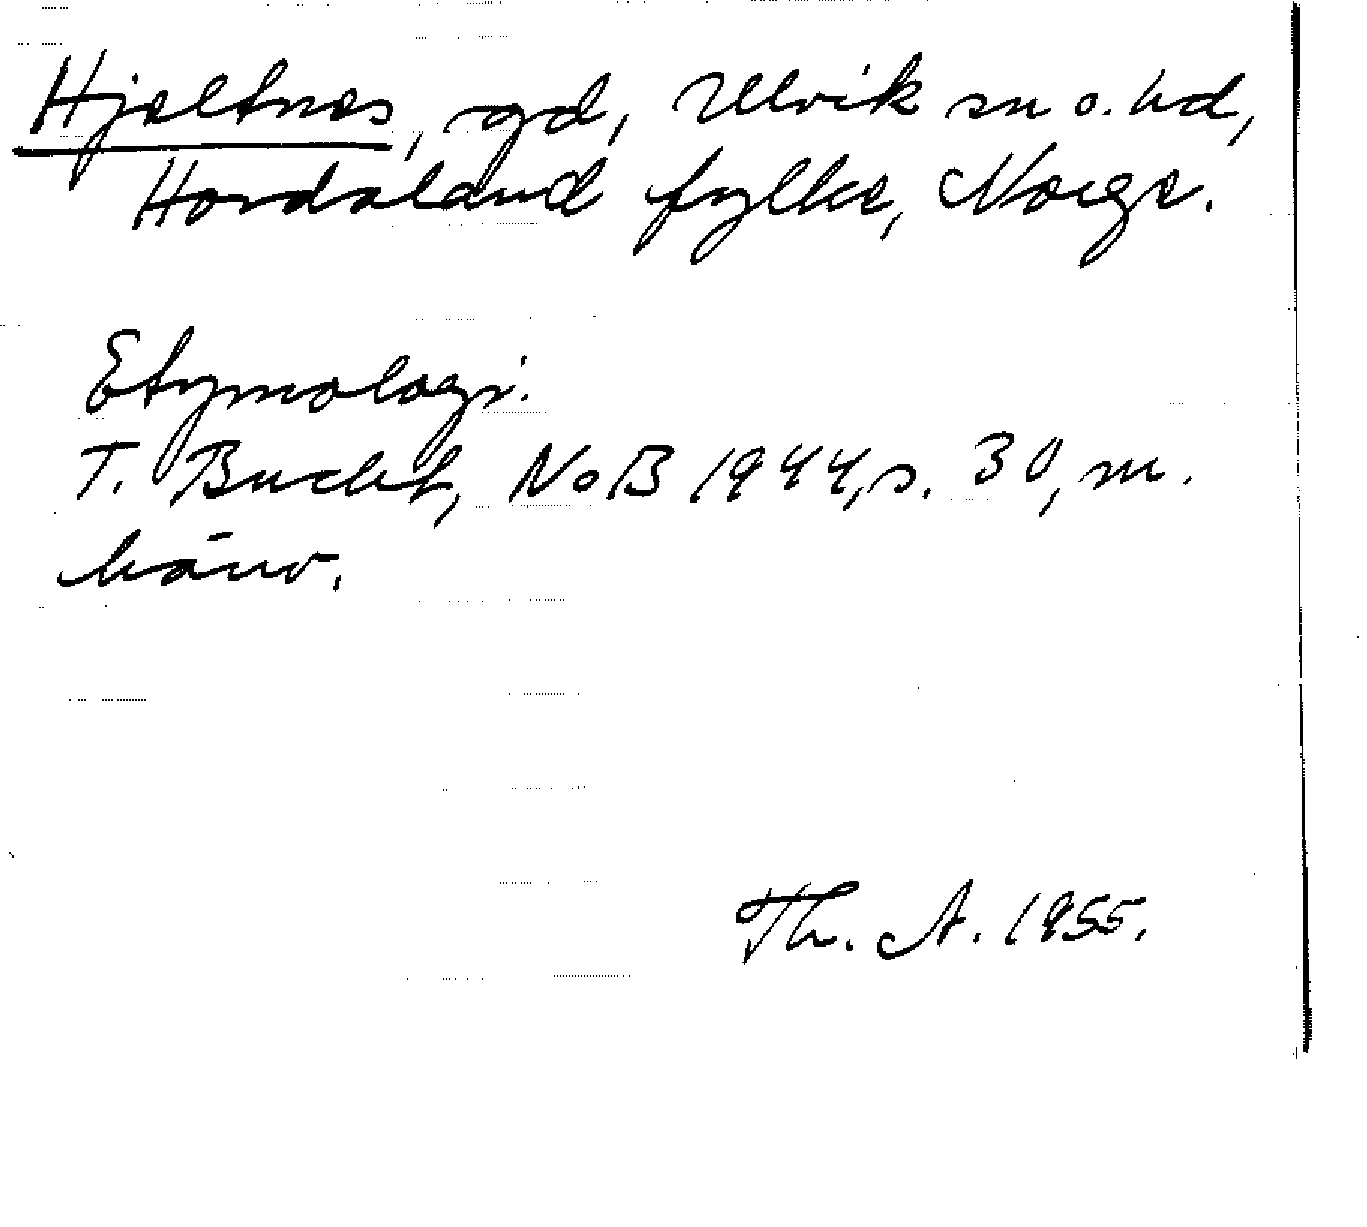 Hjeltnes, gd, Ulvik sn o. hd,
Hordaland fylke, Norge.
Etymologi.
T. Bucht, NoB 1944, s. 30, m.
hänv.
Th. A. 1955.